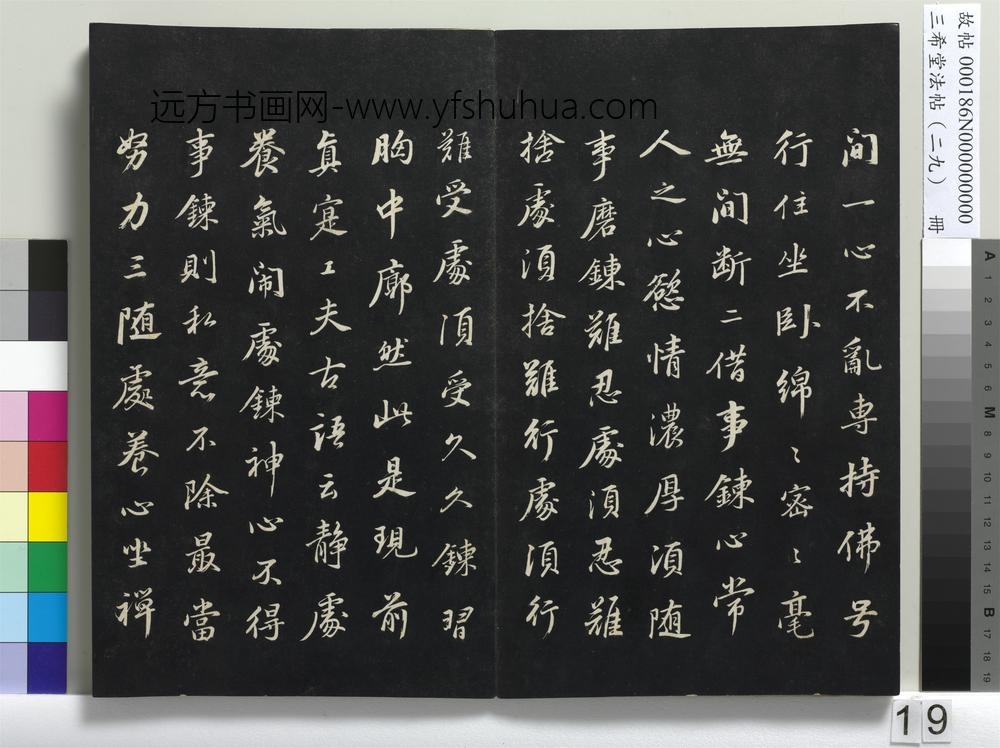 间一心不亂専持佛号
行住坐卧綿〻密〻毫
無间断二借事鍊心常
人之心慾情濃厚須随
事磨鍊難忍處須忍難
捨處須捨難行處須行
難受處須受久久鍊習
胸中廓然此是現前
真寔工夫古語云静處
養氣闹處鍊神心不得
事鍊則私意不除最當
努力三随處养心坐禅
远方书画网-www.yfshuhua.com
故帖 000186N000000000
三希堂法帖（二九） 冊
A 1 2 3 4 5 6 M 8 9 10 11 12 13 14 15 B 17 18 19
19